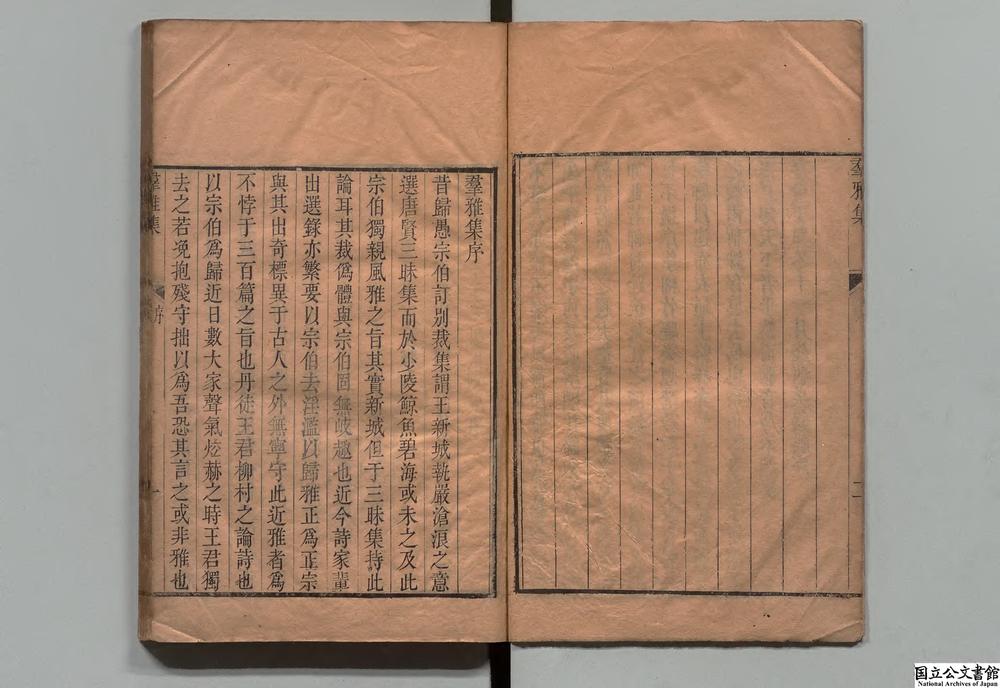 羣雅集
二
羣雅集序
昔歸愚宗伯訂別裁集謂王新城執嚴滄浪之意
選唐賢三昧集而於少陵鯨魚碧海或未之及此
宗伯獨親風雅之旨其實新城但于三昧集持此
論耳其裁僞體與宗伯固無岐趣也近今詩家輩
出選錄亦繁要以宗伯去淫濫以歸雅正爲正宗
與其出奇標異于古人之外無寧守此近雅者爲
不悖于三百篇之旨也丹徒王君柳村之論詩也
以宗伯爲歸近日數大家聲氣炫赫之時王君獨
去之若凂抱殘守拙以爲吾恐其言之或非雅也
羣雅集
序
一
国立公文書館
National Archives of Japan